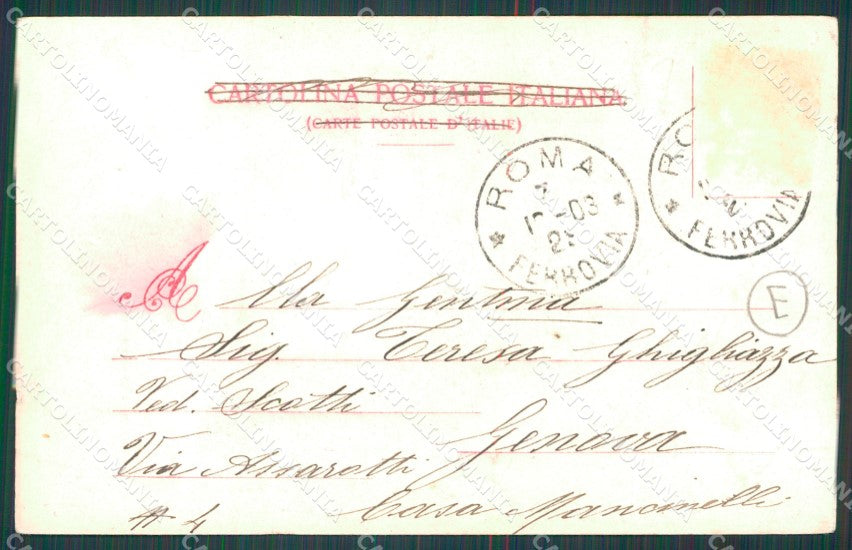 CARTOLINA POSTALE ITALIANA
(CARTE POSTALE D'ITALIE)
ROMA
FERROVIA
FERROVIA
E
Alla Gentma
Sig. Teresa Ghigliazza
Ved. Scotti
Genova
Via Assarotti
# 4 Casa Mancinelli
CARTOLINOMANIA